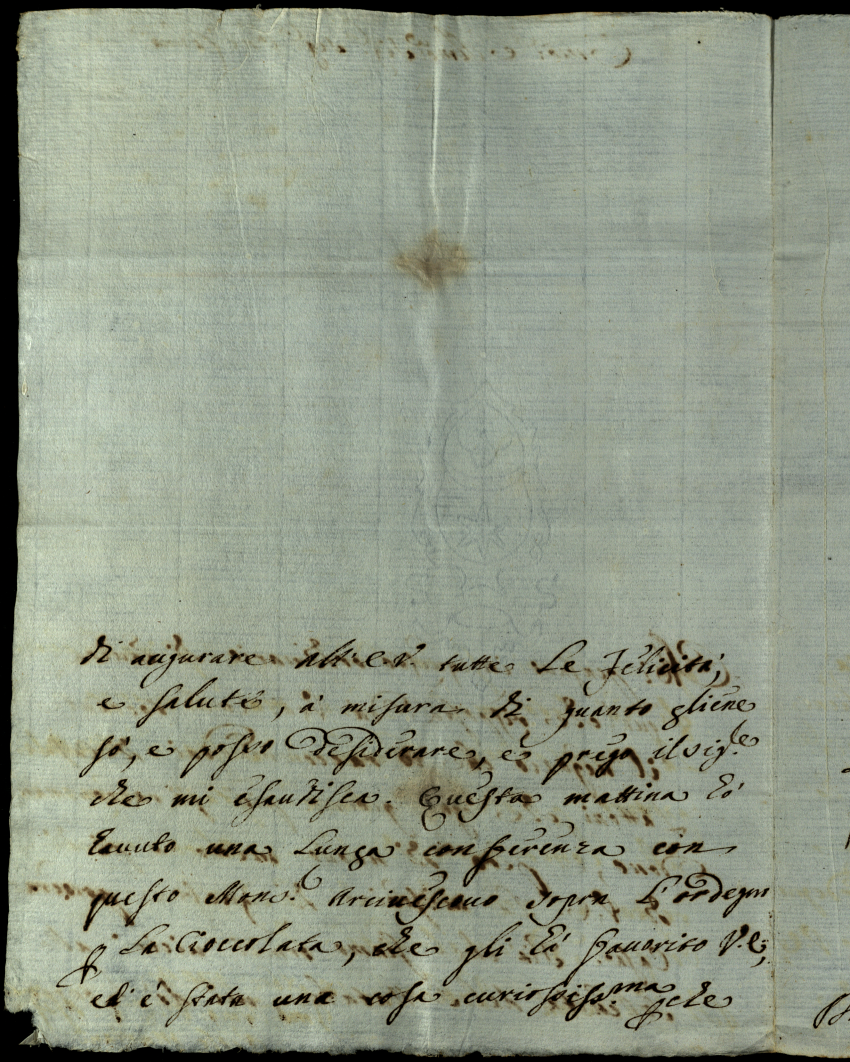 di augurare all'e.v. tutte Le Felicità,
e salute, à misura di quanto gliene
sò, e posso desiderare, e prego il sig.re
che mi esaudisca. Questa mattina hò
hauuto una Lunga conferenza con
questo Mons.r Arciuescouo sopra L'ordegno
p La Cioccolata, che gli hà fauorito V.e;
ed è stata una cosa curiosiss.ma pche